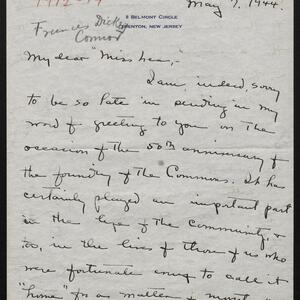 1912-14
May 7, 1944.
Frances Dickey
Connor
8 BELMONT CIRCLE
TRENTON, NEW JERSEY
My dear "Miss Lea",
I am, indeed, sorry
to be so late in sending in my
word of greeting to you on the
occasion of the 50th anniversary of
the founding of the Commons. It has
certainly played an important part
in the life of the community, &
too, in the lives of those of us who
were fortunate enuf to call it
"home" for a matter of months